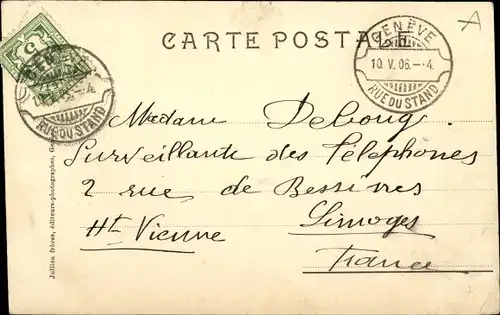 CARTE POSTALE
GENÈVE
10.V.06.-4
RUE DU STAND
5
RUE DU STAND
A
Madame Deboug
Surveillante des Téléphones
2 rue de Bessines
Hte Vienne
Limoges
France
Jullien frères, éditeurs-photographes,